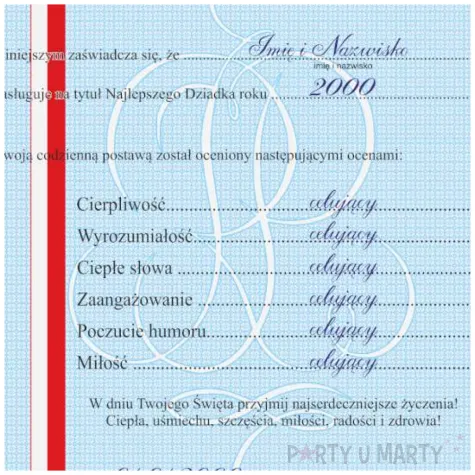 iniejszym zaświadcza się, że ........ Imię i Nazwisko
imię i nazwisko
asługuje na tytuł Najlepszego Dziadka roku ........ 2000
woją codzienną postawą został oceniony następującymi ocenami:
Cierpliwość........ celujący
Wyrozumiałość........ celujący
Ciepłe słowa ........ celujący
Zaangażowanie ........ celujący
Poczucie humoru........ celujący
Miłość ........ celujący
W dniu Twojego Święta przyjmij najserdeczniejsze życzenia!
Ciepła, uśmiechu, szczęścia, miłości, radości i zdrowia!
PARTY U MARTY